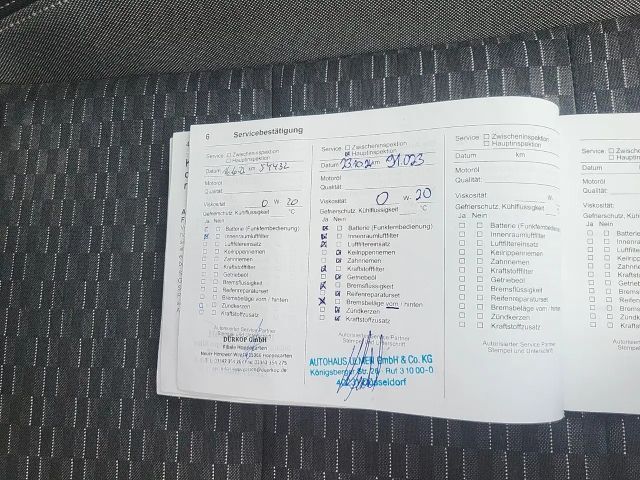 6 Servicebestätigung
Service: ☐ Zwischeninspektion
☐ Hauptinspektion
Datum km 54432
Motoröl
Qualität
Viskosität 0 W- 20
Gefrierschutz, Kühlflüssigkeit °C
Ja Nein
Batterie (Funkfernbedienung)
Innenraumluftfilter
Luftfiltereinsatz
Keilrippenriemen
Zahnriemen
Kraftstofffilter
Getriebeöl
Bremsflüssigkeit
Reifenreparaturset
Bremsbeläge vorn / hinten
Zündkerzen
Kraftstoffzusatz
Autorisierter Service Partner
DÜRKOP GmbH
Filiale Hoppegarten
Service: ☐ Zwischeninspektion
☒ Hauptinspektion
Datum km 91.023
Motoröl
Qualität:
Viskosität 0 W- 20
Gefrierschutz, Kühlflüssigkeit °C
Ja Nein
Batterie (Funkfernbedienung)
Innenraumluftfilter
Luftfiltereinsatz
Keilrippenriemen
Zahnriemen
Kraftstofffilter
Getriebeöl
Bremsflüssigkeit
Reifenreparaturset
Bremsbeläge vorn / hinten
Zündkerzen
Kraftstoffzusatz
Autorisierter Service Partner
Stempel und Unterschrift
AUTOHAUS ULMEN GmbH & Co. KG
Königsberger Str. Ruf 3 10 00-0
Düsseldorf
Service: ☐ Zwischeninspektion
☐ Hauptinspektion
Datum km
Motoröl
Qualität:
Viskosität W-
Gefrierschutz, Kühlflüssigkeit °C
Ja Nein
Batterie (Funkfernbedienung)
Innenraumluftfilter
Luftfiltereinsatz
Keilrippenriemen
Zahnriemen
Kraftstofffilter
Getriebeöl
Bremsflüssigkeit
Reifenreparaturset
Bremsbeläge vorn / hinten
Zündkerzen
Kraftstoffzusatz
Autorisierter Service Partner
Stempel und Unterschrift
Service: ☐
Datum
Motoröl
Qualität:
Viskosität
Gefrierschutz,
Ja Nein